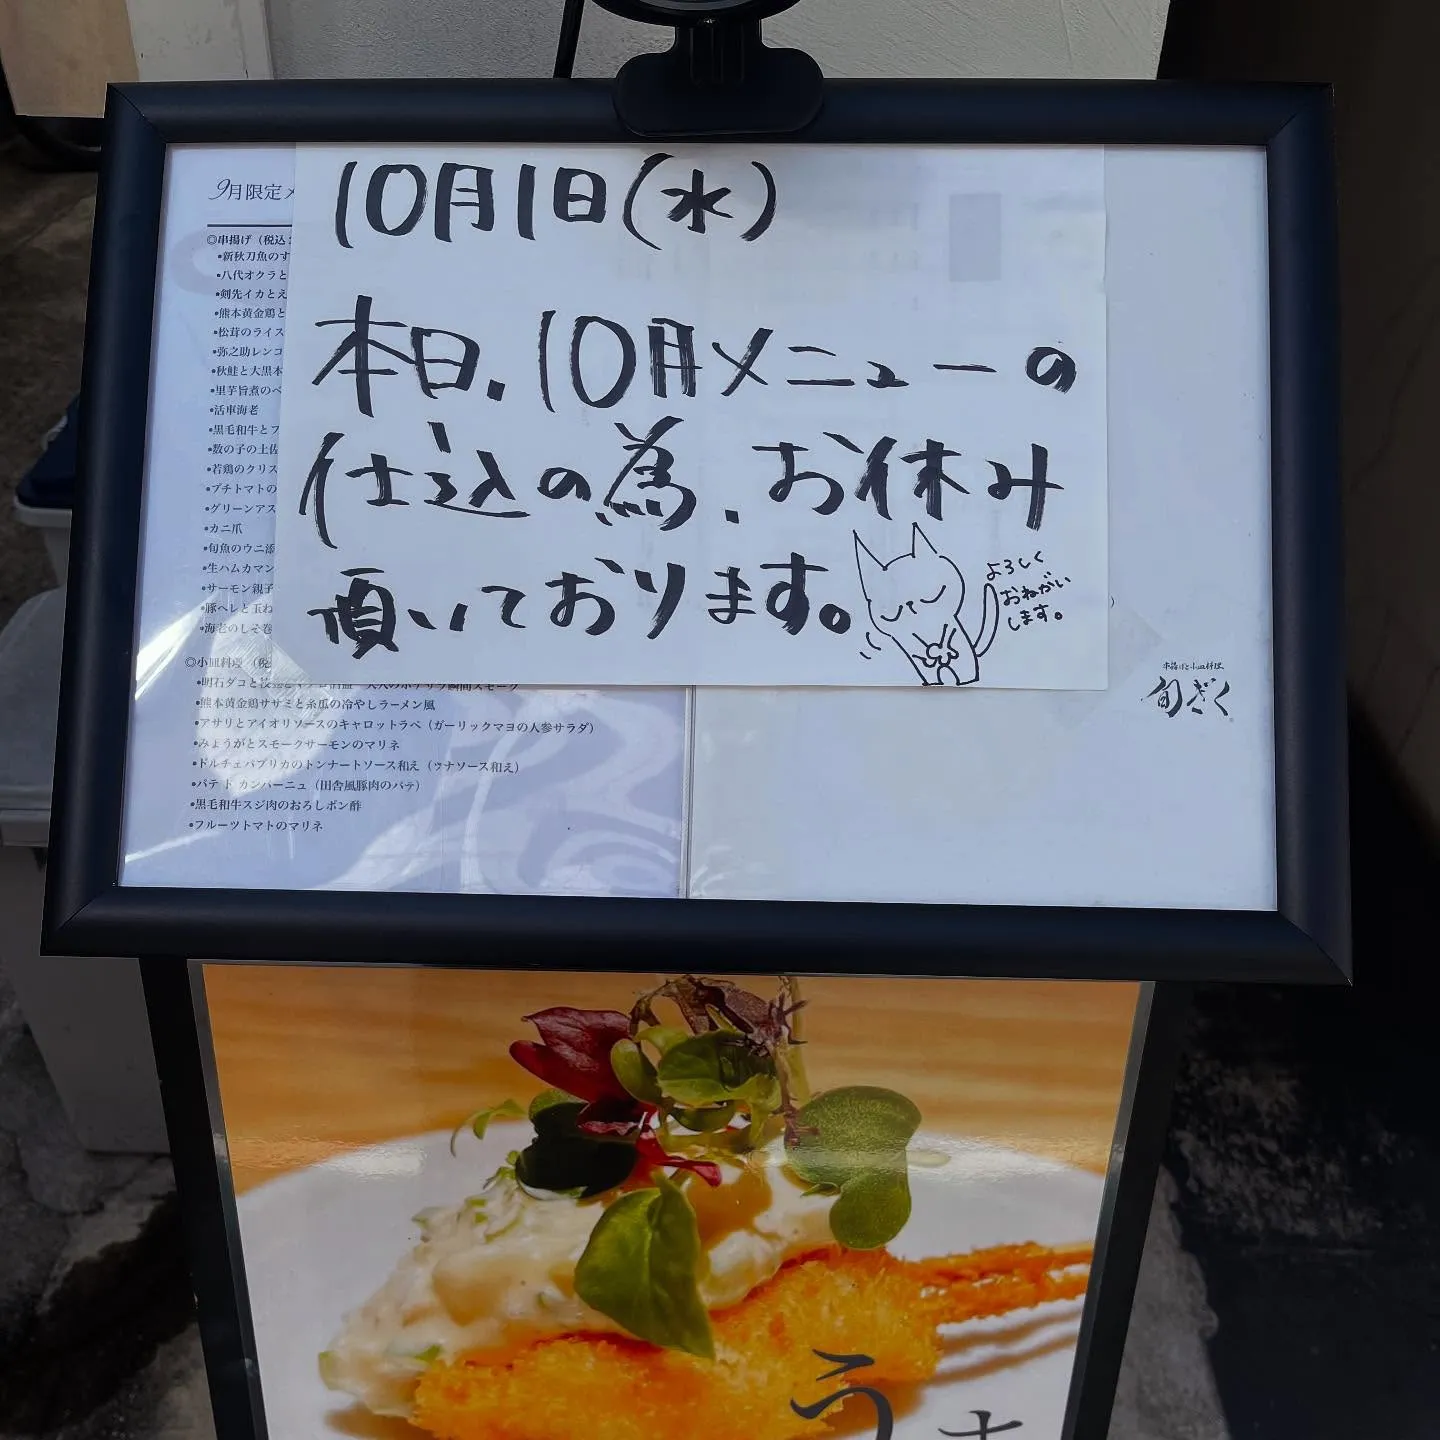 10月1日(水)
本日、10月メニューの
仕込の為、お休み
頂いております。
よろしく
おねがい
します。
9月限定メ
◎串揚げ(税込
•新秋刀魚のす
•八代オクラと
•剣先イカとえ
•熊本黄金鶏と
•松茸のライス
•弥之助レンコ
•秋鮭と大黒本
•里芋旨煮のベ
•活車海老
•黒毛和牛とフ
•数の子の土佐
•若鶏のクリス
•プチトマトの
•グリーンアス
•カニ爪
•旬魚のウニ添
•生ハムカマン
•サーモン親子
•豚ヘレと玉ね
•海老のしそ巻
◎小皿料理(税
•明石ダコと
•熊本黄金鶏ササミと糸瓜の冷やしラーメン風
•アサリとアイオリソースのキャロットラペ(ガーリックマヨの人参サラダ)
•みょうがとスモークサーモンのマリネ
•ドルチェパプリカのトンナートソース和え(ツナソース和え)
•パテ ド カンパーニュ(田舎風豚肉のパテ)
•黒毛和牛スジ肉のおろしポン酢
•フルーツトマトのマリネ
串揚げと小皿料理
旬ざく
う